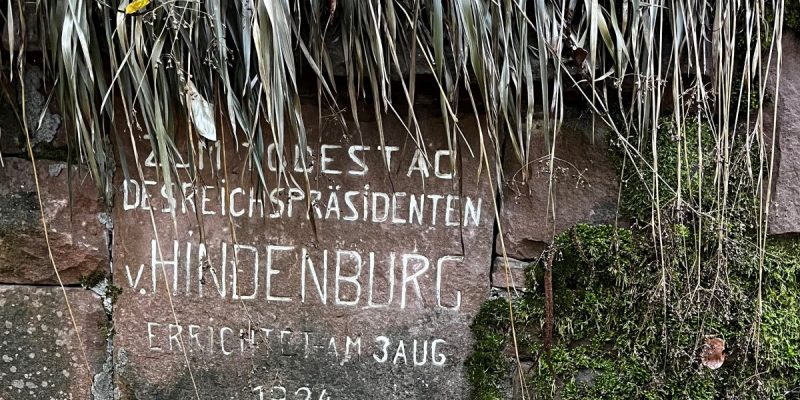 ZUM TODESTAG
DES REICHSPRÄSIDENTEN
v. HINDENBURG
ERRICHTET AM 3 AUG